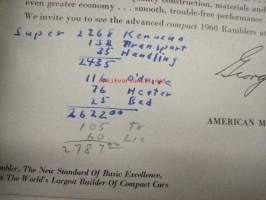 even greater economy ... smooth, trouble-free performance
We invite you to see the advanced compact 1960 Ramblers at
Super 2268 Kenosha
132 Transport
35 Handling
2435
76 Heater
25 Bed
2622 00
105
2787 00
Georg
AMERICAN M
mbler, The New Standard Of Basic Excellence,
The World's Largest Builder Of Compact Cars